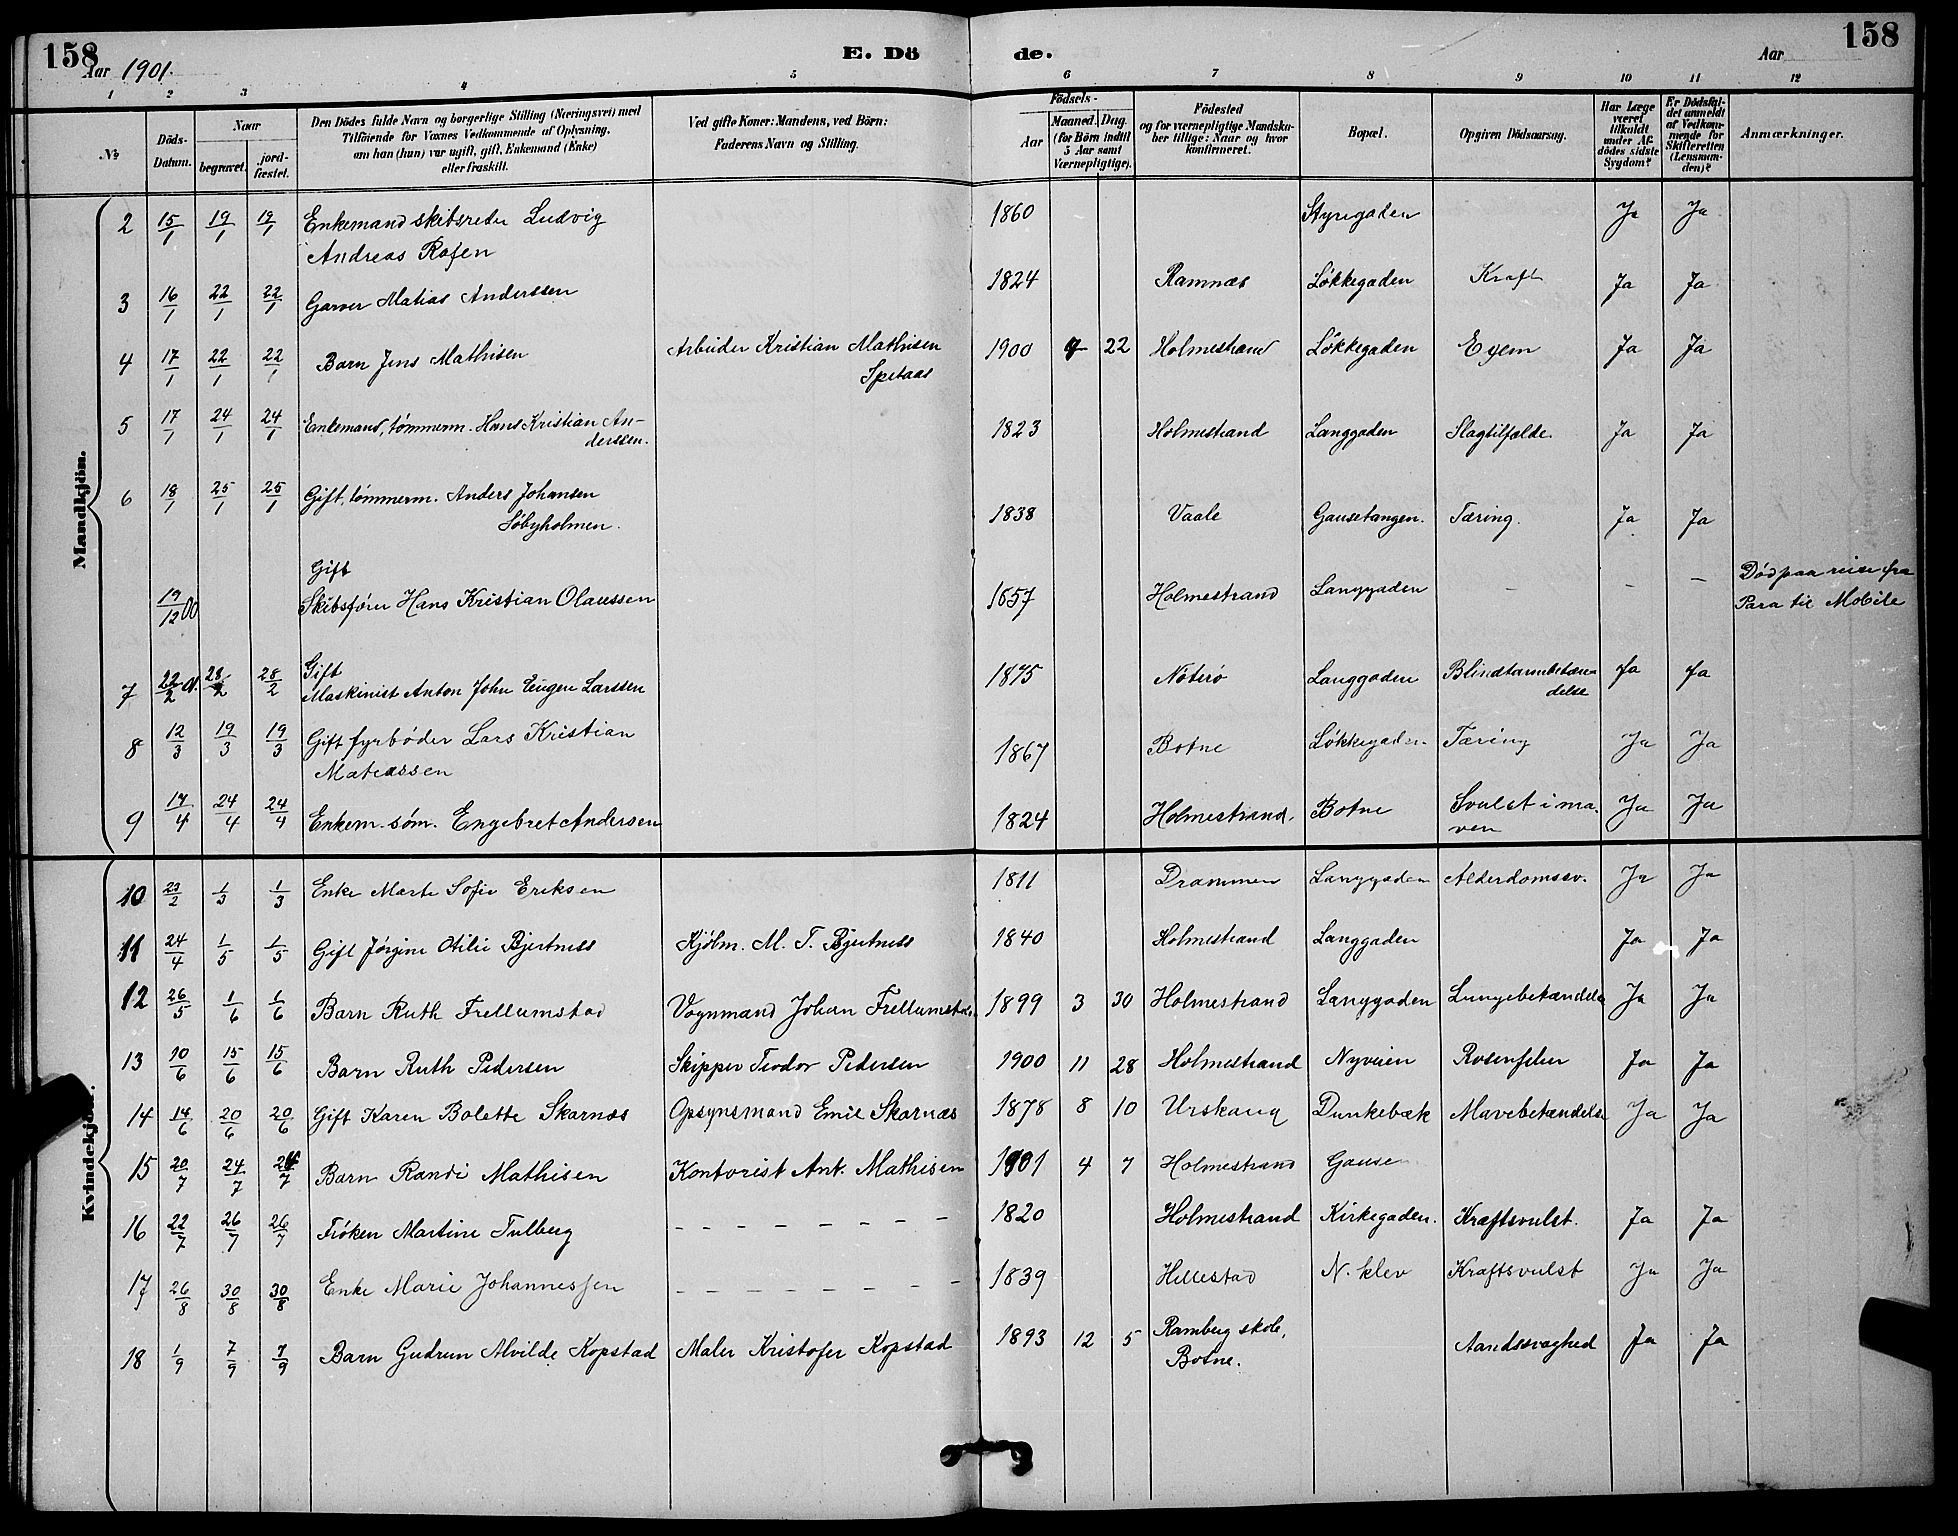 158 E. Dö de. 158
Aar 1901. Aar
1 2 3 4 5 6 7 8 9 10 11 12
№
Döds-Datum.
Naar
begravet. jord-fæstet.
Den Dödes fulde Navn og borgerlige Stilling (Næringsvei) med
Tilföiende for Voxnes Vedkommende af Oplysning,
om han (hun) var ugift, gift, Enkemand (Enke)
eller fraskilt.
Ved gifte Koner: Mandens, ved Börn:
Faderens Navn og Stilling.
Födsels-
Aar Maaned. Dag.
(for Börn indtil
5 Aar samt
Værnepligtige).
Födested
og for værnepligtige Mandska-
ber tillige: Naar og hvor
konfirmeret.
Bopæl.
Opgiven Dödsaarsag.
Har Læge
været
tilkaldt
under Af-
dödes sidste
Sygdom?
Er Dödsfal-
det anmeldt
af Vedkom-
mende for
Skifteretten
(Lensman-
den)?
Anmærkninger.
Mandkjön.
2 15/1 19/1 19/1 Enkemand skibsreder Ludvig 1860 Styregaden Ja Ja
Andreas Rafen
3 16/1 22/1 22/1 Garver Matias Anderssen 1824 Ramnæs Løkkegaden Kræft Ja Ja
4 17/1 22/1 22/1 Barn Jens Mathisen Arbeider Kristian Mathisen 1900 9 22 Holmestrand Løkkegaden Exem Ja Ja
5 17/1 24/1 24/1 Enkemand, tømmerm. Hans Kristian An- 1823 Holmestrand Langgaden Slagtilfælde. Ja Ja
derssen.
6 18/1 25/1 25/1 Gift, tømmerm. Anders Johansen 1838 Vaale Gausetangen. Tæring. Ja Ja
Søbyholmen.
Gift
19/12 00 Skibsfører Hans Kristian Olaussen 1857 Holmestrand Langgaden - - - Død paa reise fra
Para til Mobile
Gift
7 22/2 01. 28/2 28/2 Maskinist Anton John Eugen Larssen 1875 Nøterø Langgaden Blindtarmbetæn- Ja Ja
delse
8 12/3 19/3 19/3 Gift fyrbøder Lars Kristian 1867 Botne Løkkegaden Tæring Ja Ja
Matiassen
9 17/4 24/4 24/4 Enkem. søm. Engebret Andersen 1824 Holmestrand. Botne Svulst i ma- Ja Ja
ven
Kvindekjön.
10 23/2 1/3 1/3 Enke Marte Sofie Eriksen 1811 Drammen Langgaden Alderdomssv. Ja Ja
11 24/4 1/5 1/5 Gift Jørgine Otilie Bjertness Kjøbm. M. T. Bjertness 1840 Holmestrand Langgaden Ja Ja
12 26/5 1/6 1/6 Barn Ruth Frellumstad Vognmand Johan Frellumstad. 1899 3 30 Holmestrand Langgaden Lungebetændelse Ja Ja
13 10/6 15/6 15/6 Barn Ruth Pedersen Skipper Teodor Pedersen 1900 11 28 Holmestrand Nyveien Rosenfeber Ja Ja
14 14/6 20/6 20/6 Gift Karen Bolette Skarnæs Opsynsmand Emil Skarnæs 1878 8 10 Urskaug Dunkebæk Mavebetændelse Ja Ja
15 20/7 24/7 24/7 Barn Randi Mathisen Kontorist Ant. Mathisen 1901 4 7 Holmestrand Gausen
16 22/7 26/7 26/7 Frøken Martine Tulberg - - - - - - - - 1820 Holmestrand Kirkegaden. Kræftsvulst. Ja Ja
17 26/8 30/8 30/8 Enke Marie Johannessen - - - - - - - - 1839 Hillestad N. klev Kræftsvulst Ja Ja
18 1/9 7/9 7/9 Barn Gudrun Alvilde Kopstad Maler Kristofer Kopstad 1893 12 5 Ramberg skole, Aandssvaghed Ja Ja
Botne.